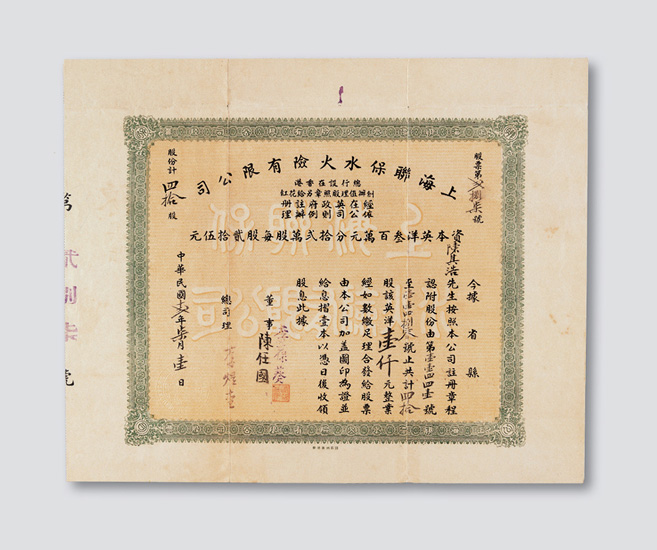 上海聯保水火險有限公司
總行設在香港
經在英政府註冊
依公司則例辦理
資本英洋叁百萬元分拾弍萬股每股貳拾伍元
股票第 捌柒號
今據 省 縣
陳其浩先生按照本公司註册章程
認附股份由第壹壹四四壹號
至壹壹四捌 號止共計四拾
股該英洋壹仟元整業
經如數繳足理合發給股票
由本公司加蓋圖印為證並
給息摺壹本以憑日後收領
股息此據
董事 陳任國
總司理
中華民國 年柒月壹日
股份計四拾股
上海聯保